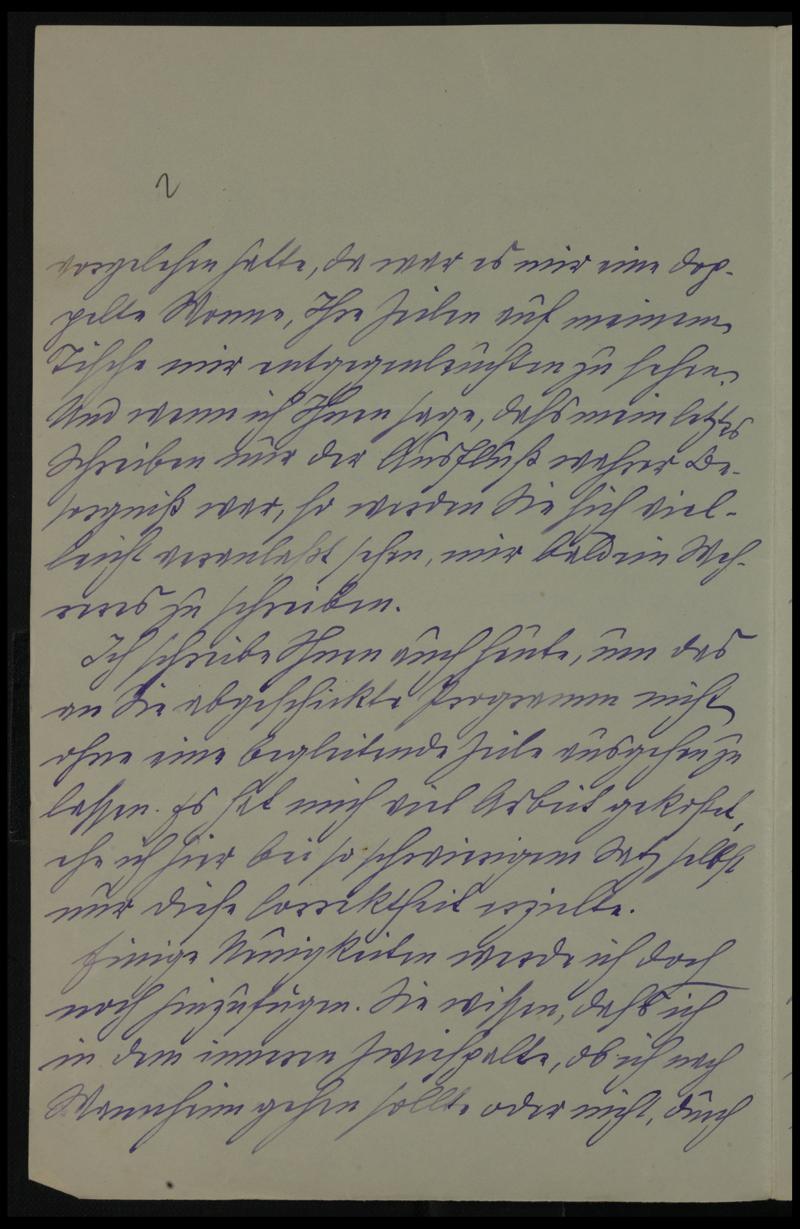 2
vorgelesen hatte, da war es mir eine dop-
pelte Wonne, Ihre Zeilen auf meinem
Tische mir entgegenleuchten zu sehen.
Und wenn ich Ihnen sage, dass mein letztes
Schreiben nur der Ausfluß wahrer Be-
sorgniß war, so werden Sie sich viel-
leicht veranlaßt sehen, mir bald ein Meh-
reres zu schreiben.
Ich schreibe Ihnen auch heute, um das
an Sie abgeschickte Programm nicht
ohne eine begleitende Zeile ausgehen zu
lassen. Es hat mich viel Arbeit gekostet,
ehe ich hier bei so schwierigem Satz selbst
nur diese Correktheit erzielte.
Einige Neuigkeiten werde ich doch
noch hinzufügen. Sie wissen, dass ich
in dem inneren Zwiespalte, ob ich nach
Mannheim gehen sollte oder nicht, durch